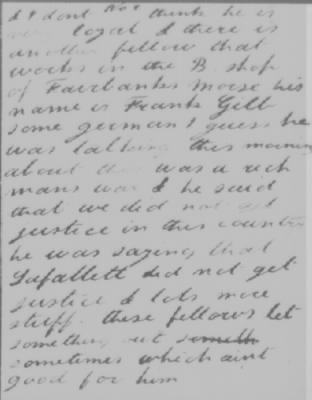 & I dont Not think he is
very loyal & there is
another fellow that
works in the B. shop
of Fairbanks Morse his
name is Frank Gelb
some german I guess he
was talking this morning
about this was a rich
mans war & he said
that we did not get
justice in this country
he was saying that
Lafallett did not get
justice & lots more
stuff. these fellows let
something out
sometimes which aint
good for him